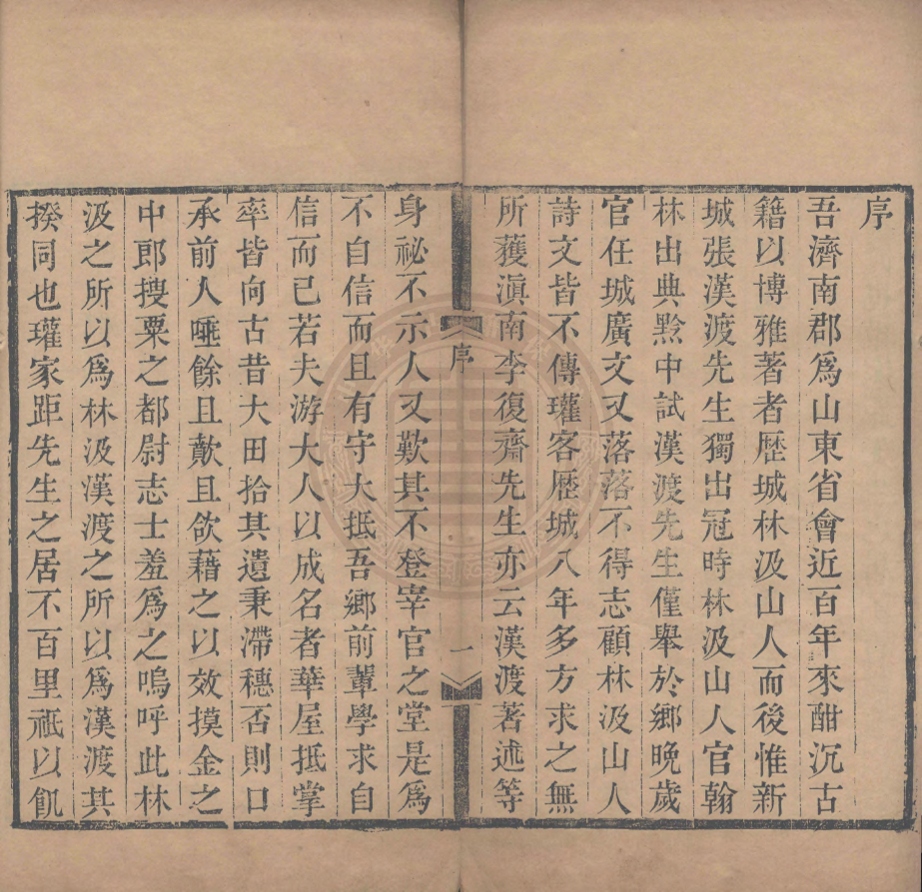 序
吾濟南郡爲山東省會近百年來酣沉古
籍以博雅著者歷城林汲山人而後惟新
城張漢渡先生獨出冠時林汲山人官翰
林出典黔中試漢渡先生僅舉於鄉晚歲
官任城廣文又落落不得志顧林汲山人
詩文皆不傳瓘客歷城八年多方求之無
所獲滇南李復齋先生亦云漢渡著述等
序
一
身祕不示人又歎其不登宰官之堂是爲
不自信而且有守大抵吾鄉前輩學求自
信而已若夫游大人以成名者華屋抵掌
率皆向古昔大田拾其遺秉滯穗否則口
承前人唾餘且歊且欲藉之以效摸金之
中郎搜粟之都尉志士羞爲之嗚呼此林
汲之所以爲林汲漢渡之所以爲漢渡其
揆同也瓘家距先生之居不百里祇以飢